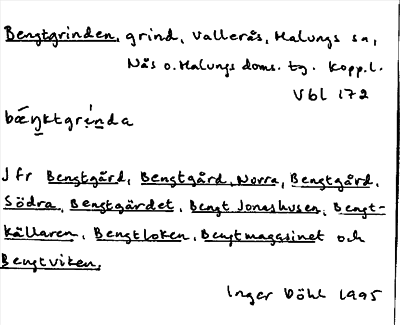 Bengtgrinden, grind, Vallerås, Malungs sn,
Nås o. Malungs doms. tg. Kopp.l.
Vbl 172
bæ̀ŋktgrínda
Jfr Bengtgård, Bengtgård, Norra, Bengtgård,
Södra, Bengtgärdet, Bengt Joneshusen, Bengt-
källaren, Bengtloken, Bengtmagasinet och
Bengtviken,
Inger Döhl 1995